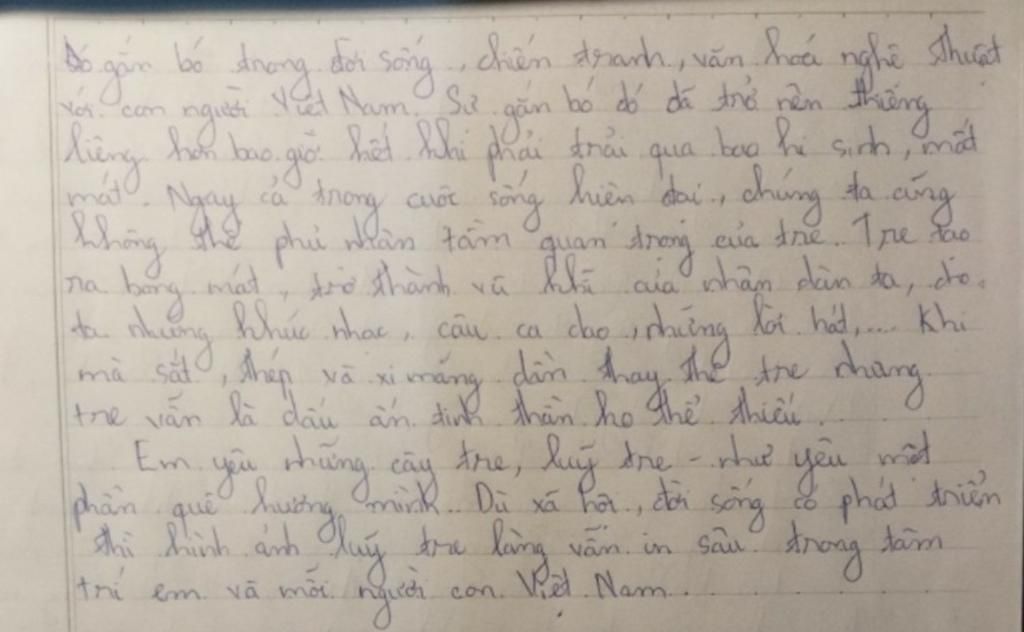 Đó gắn bó trong đời sống, chiến tranh, văn hoá nghệ thuật
với con người Việt Nam. Sự gắn bó đó đã trở nên thiêng
liêng hơn bao giờ hết khi phải trải qua bao hi sinh, mất
mát. Ngay cả trong cuộc sống hiện đại, chúng ta cũng
không thể phủ nhận tầm quan trọng của tre. Tre tạo
ra bóng mát, trở thành vũ khí của nhân dân ta, cho
ta những khúc nhạc, câu ca dao, những lời hát,... Khi
mà sắt, thép và xi măng dần thay thế tre nhưng
tre vẫn là dấu ấn tinh thần ko thể thiếu.
Em yêu những cây tre, luỹ tre - như yêu một
phần quê hương mình. Dù xã hội, đời sống có phát triển
thì hình ảnh luỹ tre làng vẫn in sâu trong tâm
trí em và mỗi người con Việt Nam.